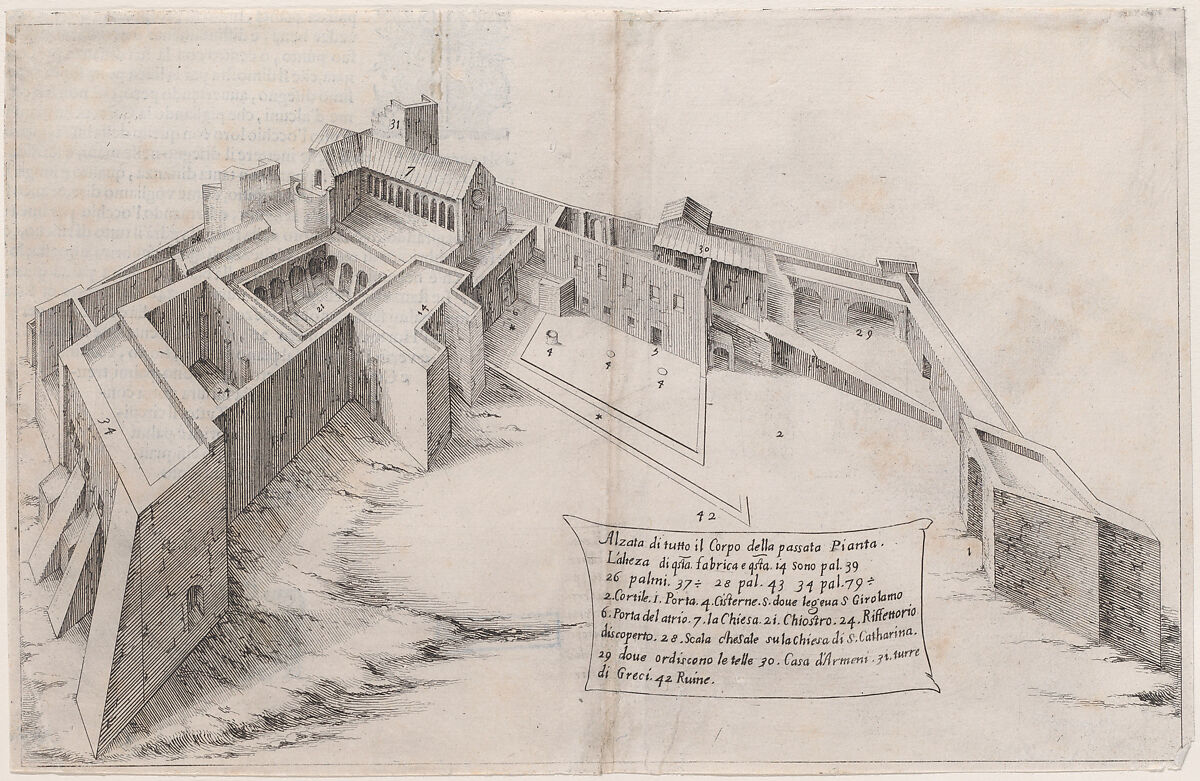 31
7
30
21
14
29
4
4
5
4
24
34
2
42
1
Alzata di tutto il Corpo della passata Pianta.
L'alteza di qsta fabrica e qsta. 14 sono pal. 39
26 palmi. 37÷ 28 pal. 43 34 pal. 79÷
2. Cortile. 1. Porta. 4. Cisterne. 5. doue legeua S Girolamo
6. Porta del atrio. 7. la Chiesa. 21. Chiostro. 24. Riffettorio
discoperto. 28. Scala che sale su la chiesa di S. Catharina.
29 doue ordiscono le telle 30. Casa d'Armeni. 31. turre
di Greci. 42 Ruine.